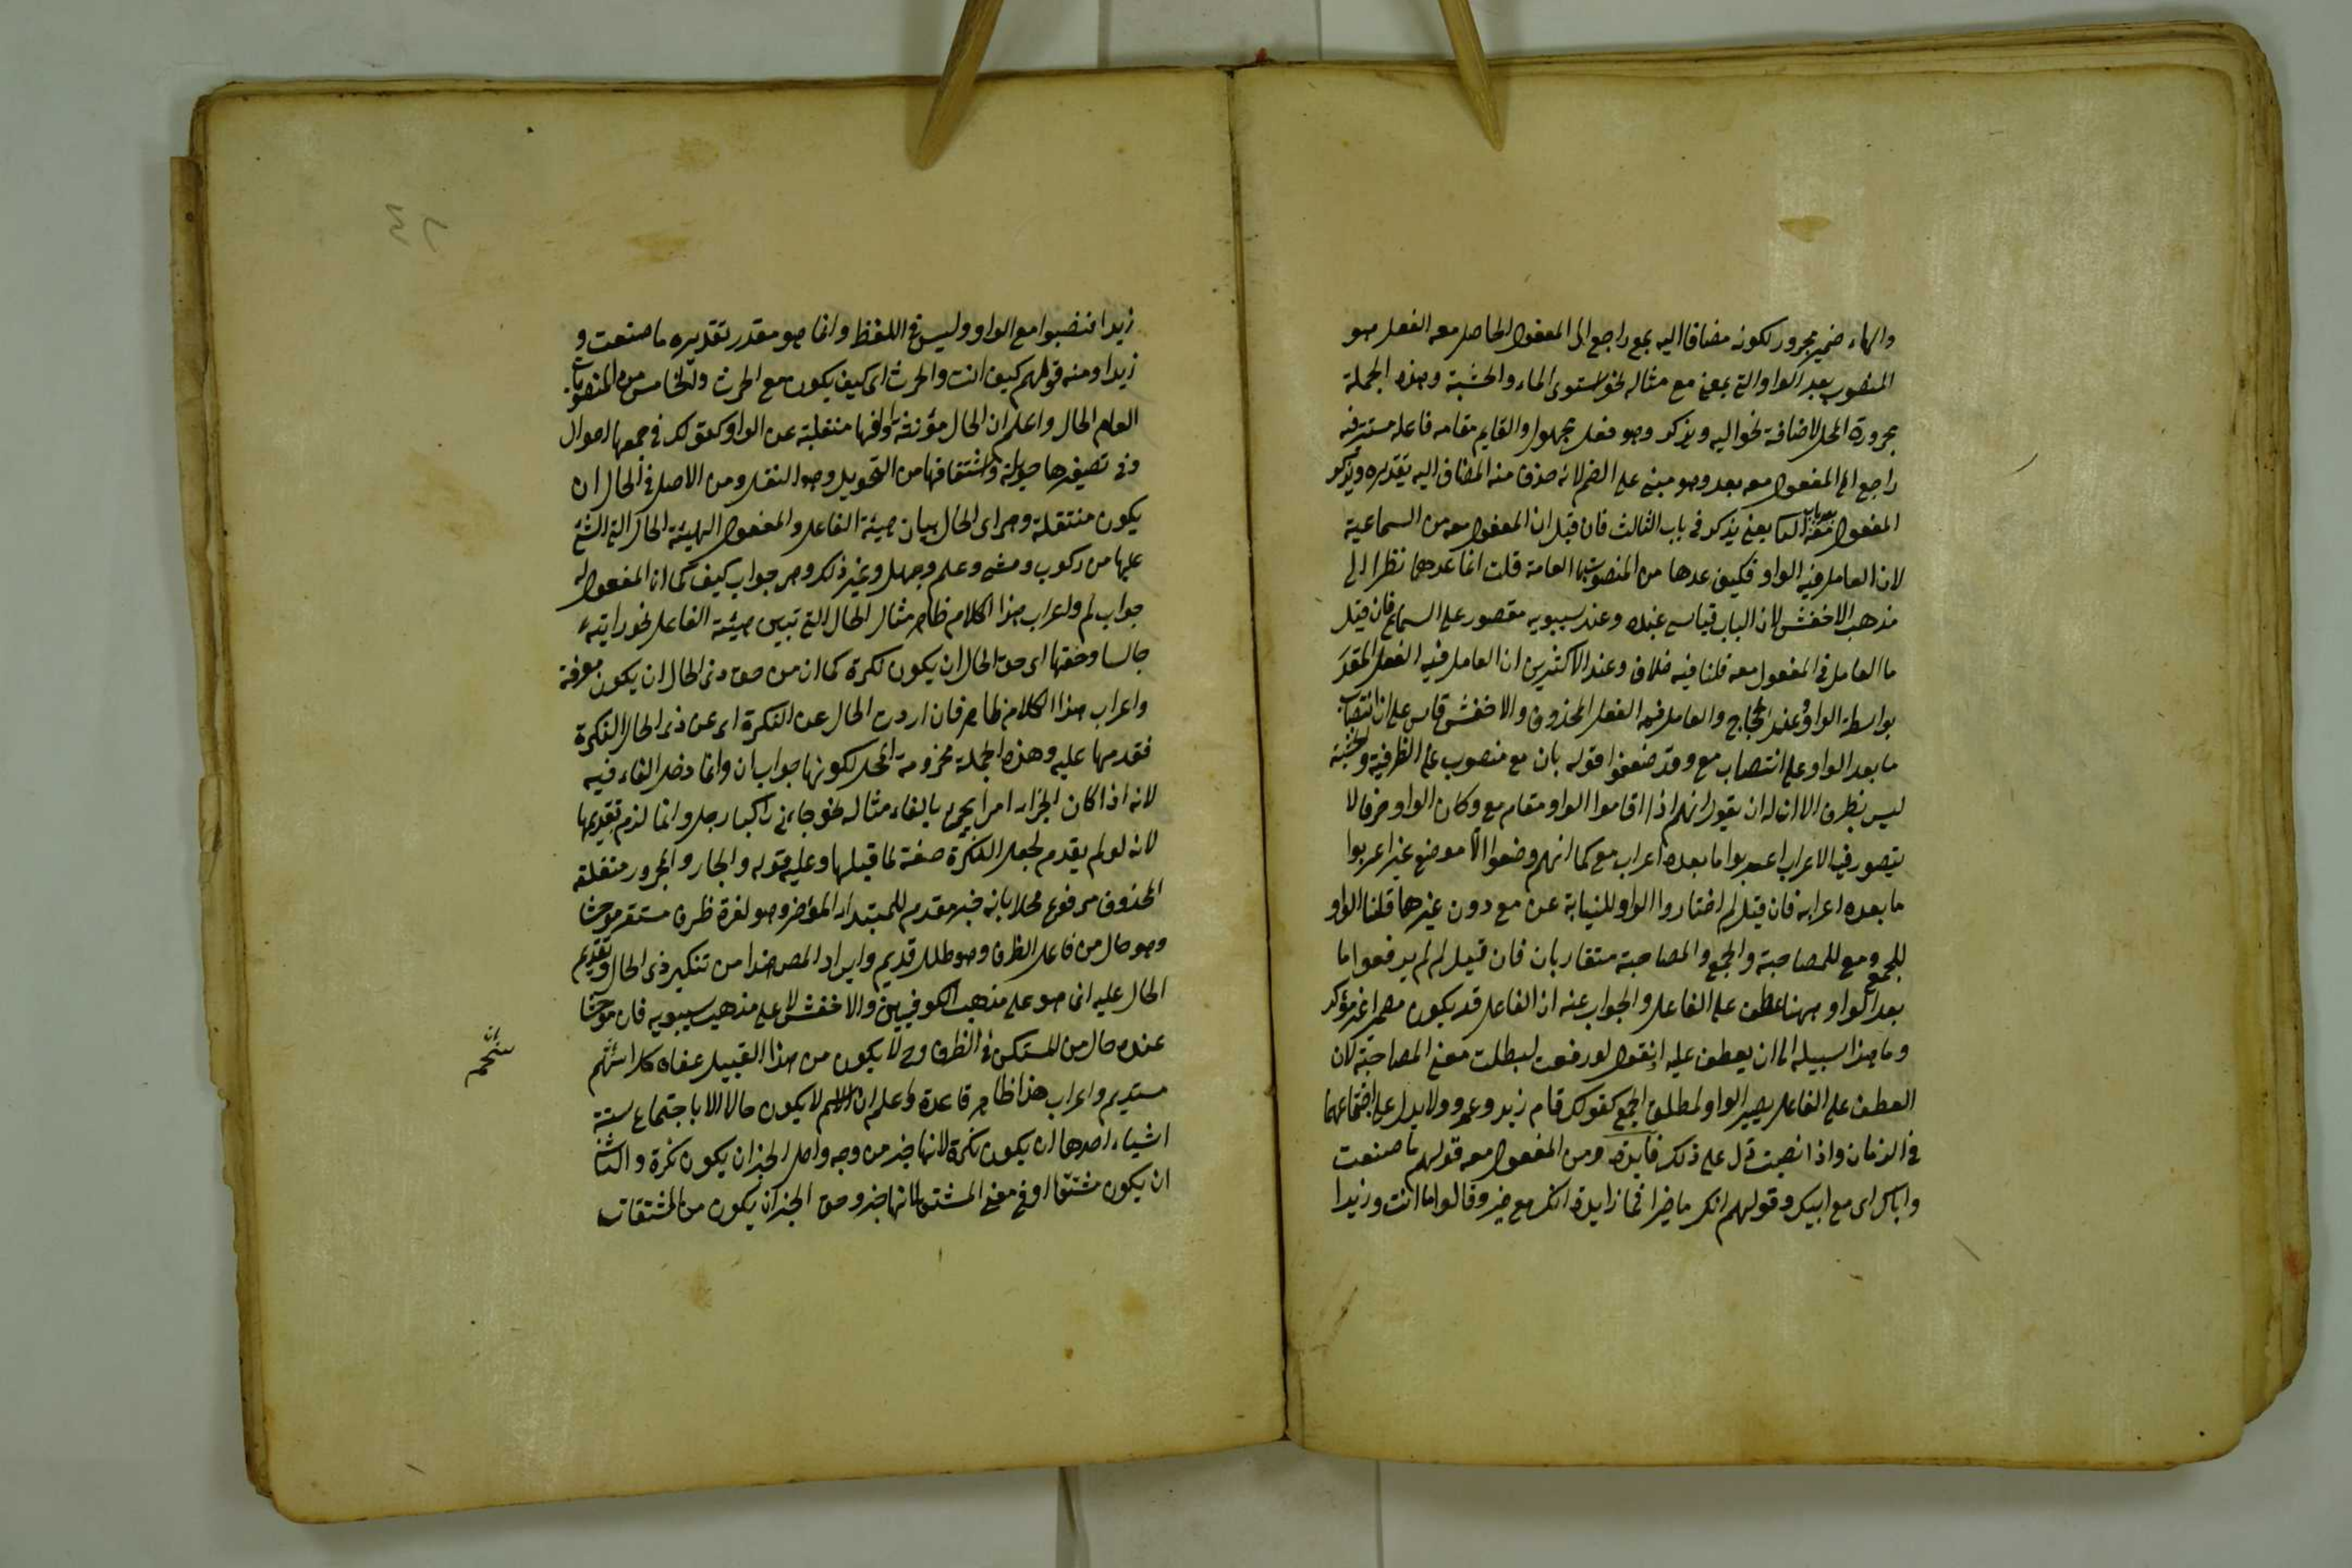 والهاء ضمير مجرور لكونه مضافا اليه بمع راجع الى المفعول الحاصل معه الفعل هو
المنصوب بعد الواو التي بمعنى مع مثاله نحو استوى الماء والخشبة وهذه الجملة
مجرورة المحل لاضافة نحو اليه ويذكر وهو فعل مجهول والقايم مقامه فاعله مستتر فيه
راجع الى المفعول معه بعد وهو مبنى على الضم لانه حذف منه المضاف اليه تقديره ويذكر
المفعول معه بعد باب الثا يعني يذكر في باب الثالث فان قيل ان المفعول معه من السماعية
لان العامل فيه الواو فكيف عدها من المنصوبات العامة قلت انما عدهما نظرا الى
مذهب الاخفش لان الباب قياسى عنده وعند سيبويه مقصور على السماع فان قيل
ما العامل في المفعول معه قلنا فيه خلاف وعند الاكثرين ان العامل فيه الفعل المقدر
بواسطة الواو وعند الزجاج والعامل فيه الفعل المحذوف والاخفش قاس على ان انتصاب
ما بعد الواو على انتصاب مع وقد ضعفوا قوله بان مع منصوب على الظرفية والخشبة
ليس بظرف الا ان له ان يقول انهم اذا اقاموا الواو مقام مع وكان الواو حرفا لا
يتصور فيه الاعراب اعربوا ما بعده اعراب مع كما انهم وضعوا الا موضع غير اعربوا
ما بعده اعرابه فان قيل لم اختاروا الواو للنيابة عن مع دون غيرها قلنا الواو
للجمع ومع للمصاحبة والجمع والمصاحبة متقاربان فان قيل لم لم يرفعوا ما
بعد الواو ههنا عطف على الفاعل والجواب عنه ان الفاعل قد يكون مضمرا غير مؤكد
وما هذا سبيله الى ان يعطف عليه او نقول لو رفعت لبطلت معنى المصاحبة لان
العطف على الفاعل يصير الواو لمطلق الجمع كقولك قام زيد وعمرو ولا يدل على اجتماعهما
في الزمان واذا نصبت دل على ذلك فايدة ومن المفعول معه قولهم ما صنعت
واباك اى مع ابيك وقولهم انك ما خيرا فما زايدة انك مع خير وقالوا ما انت وزيدا
زيدا فنصبوا مع الواو وليس في اللفظ وانما هو مقدر تقديره ما صنعت و
زيدا ومنه قولهم كيف انت والحرث اى كيف يكون مع الحرث والخامس من المنصوبات
العام الحال واعلم ان الحال مؤنثة والفها منقلبة عن الواو كقولك في جمعها احوال
وفي تصغيرها حويلة واشتقاقها من التحويل وهو النقل ومن الاصل في الحال ان
يكون منتقلة وهي اى الحال بيان هيئة الفاعل والمفعول الهيئة الحال التى الشئ
عليها من ركوب ومشى وعلم وجهل وغير ذلك وهي جواب كيف كما ان المفعول له
جواب لم واعراب هذا الكلام ظاهر مثال الحال التي تبين هيئة الفاعل نحو رايته
جالسا وحقها اى حق الحال ان يكون نكرة كما ان من حق ذى الحال ان يكون معرفة
واعراب هذا الكلام ظاهر فان اردت الحال عن النكرة اى عن ذى الحال النكرة
فقدمها عليه وهذه الجملة مجزومة المحل لكونها جواب ان وانما دخل الفاء فيه
لانه اذا كان الجزاء امرا يجئ بالفاء مثاله نحو جاءنى راكبا رجل وانما لزم تقديمها
لانه لو لم يقدم لجعل النكرة صفة لما قبلها وعليه قوله والجار والمجرور متعلقه
المحذوف مرفوع محلا بانه خبر مقدم للمبتداء المؤخر وهو لغزة ظرف مستقر موحشا
وهو حال من فاعل الظرف وهو طلل قديم وايراد المص هذا من تنكير ذى الحال وتقديم
الحال عليه انما هو على مذهب الكوفيين والاخفش لا على مذهب سيبويه فان موحشا
عنده حال من المستكن في الظرف وح لا يكون من هذا القبيل عفاه كل اسحم
مستديم واعراب هذا ظاهر قاعدة واعلم ان الاسم لا يكون حالا الا باجتماع ستة
اشياء احدها ان يكون نكرة لانها خبر من وجه واصل الخبر ان يكون نكرة والثا
ان يكون مشتقا او في معنى المشتق لانها خبر وحق الخبر ان يكون من المشتقات